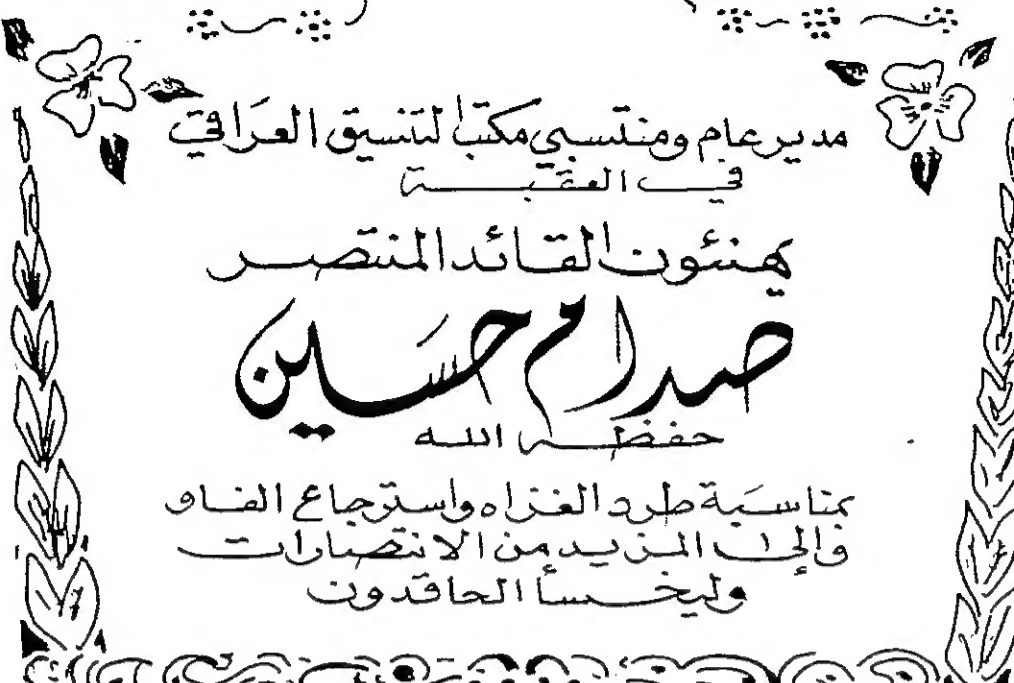 مدير عام ومنتسبي مكتب التنسيق العراقي
في العقبة
يهنئون القائد المنتصر
صدام حسين
حفظه الله
بمناسبة طرد الغزاه واسترجاع الفاو
وإلى المزيد من الانتصارات
وليخسأ الحاقدون